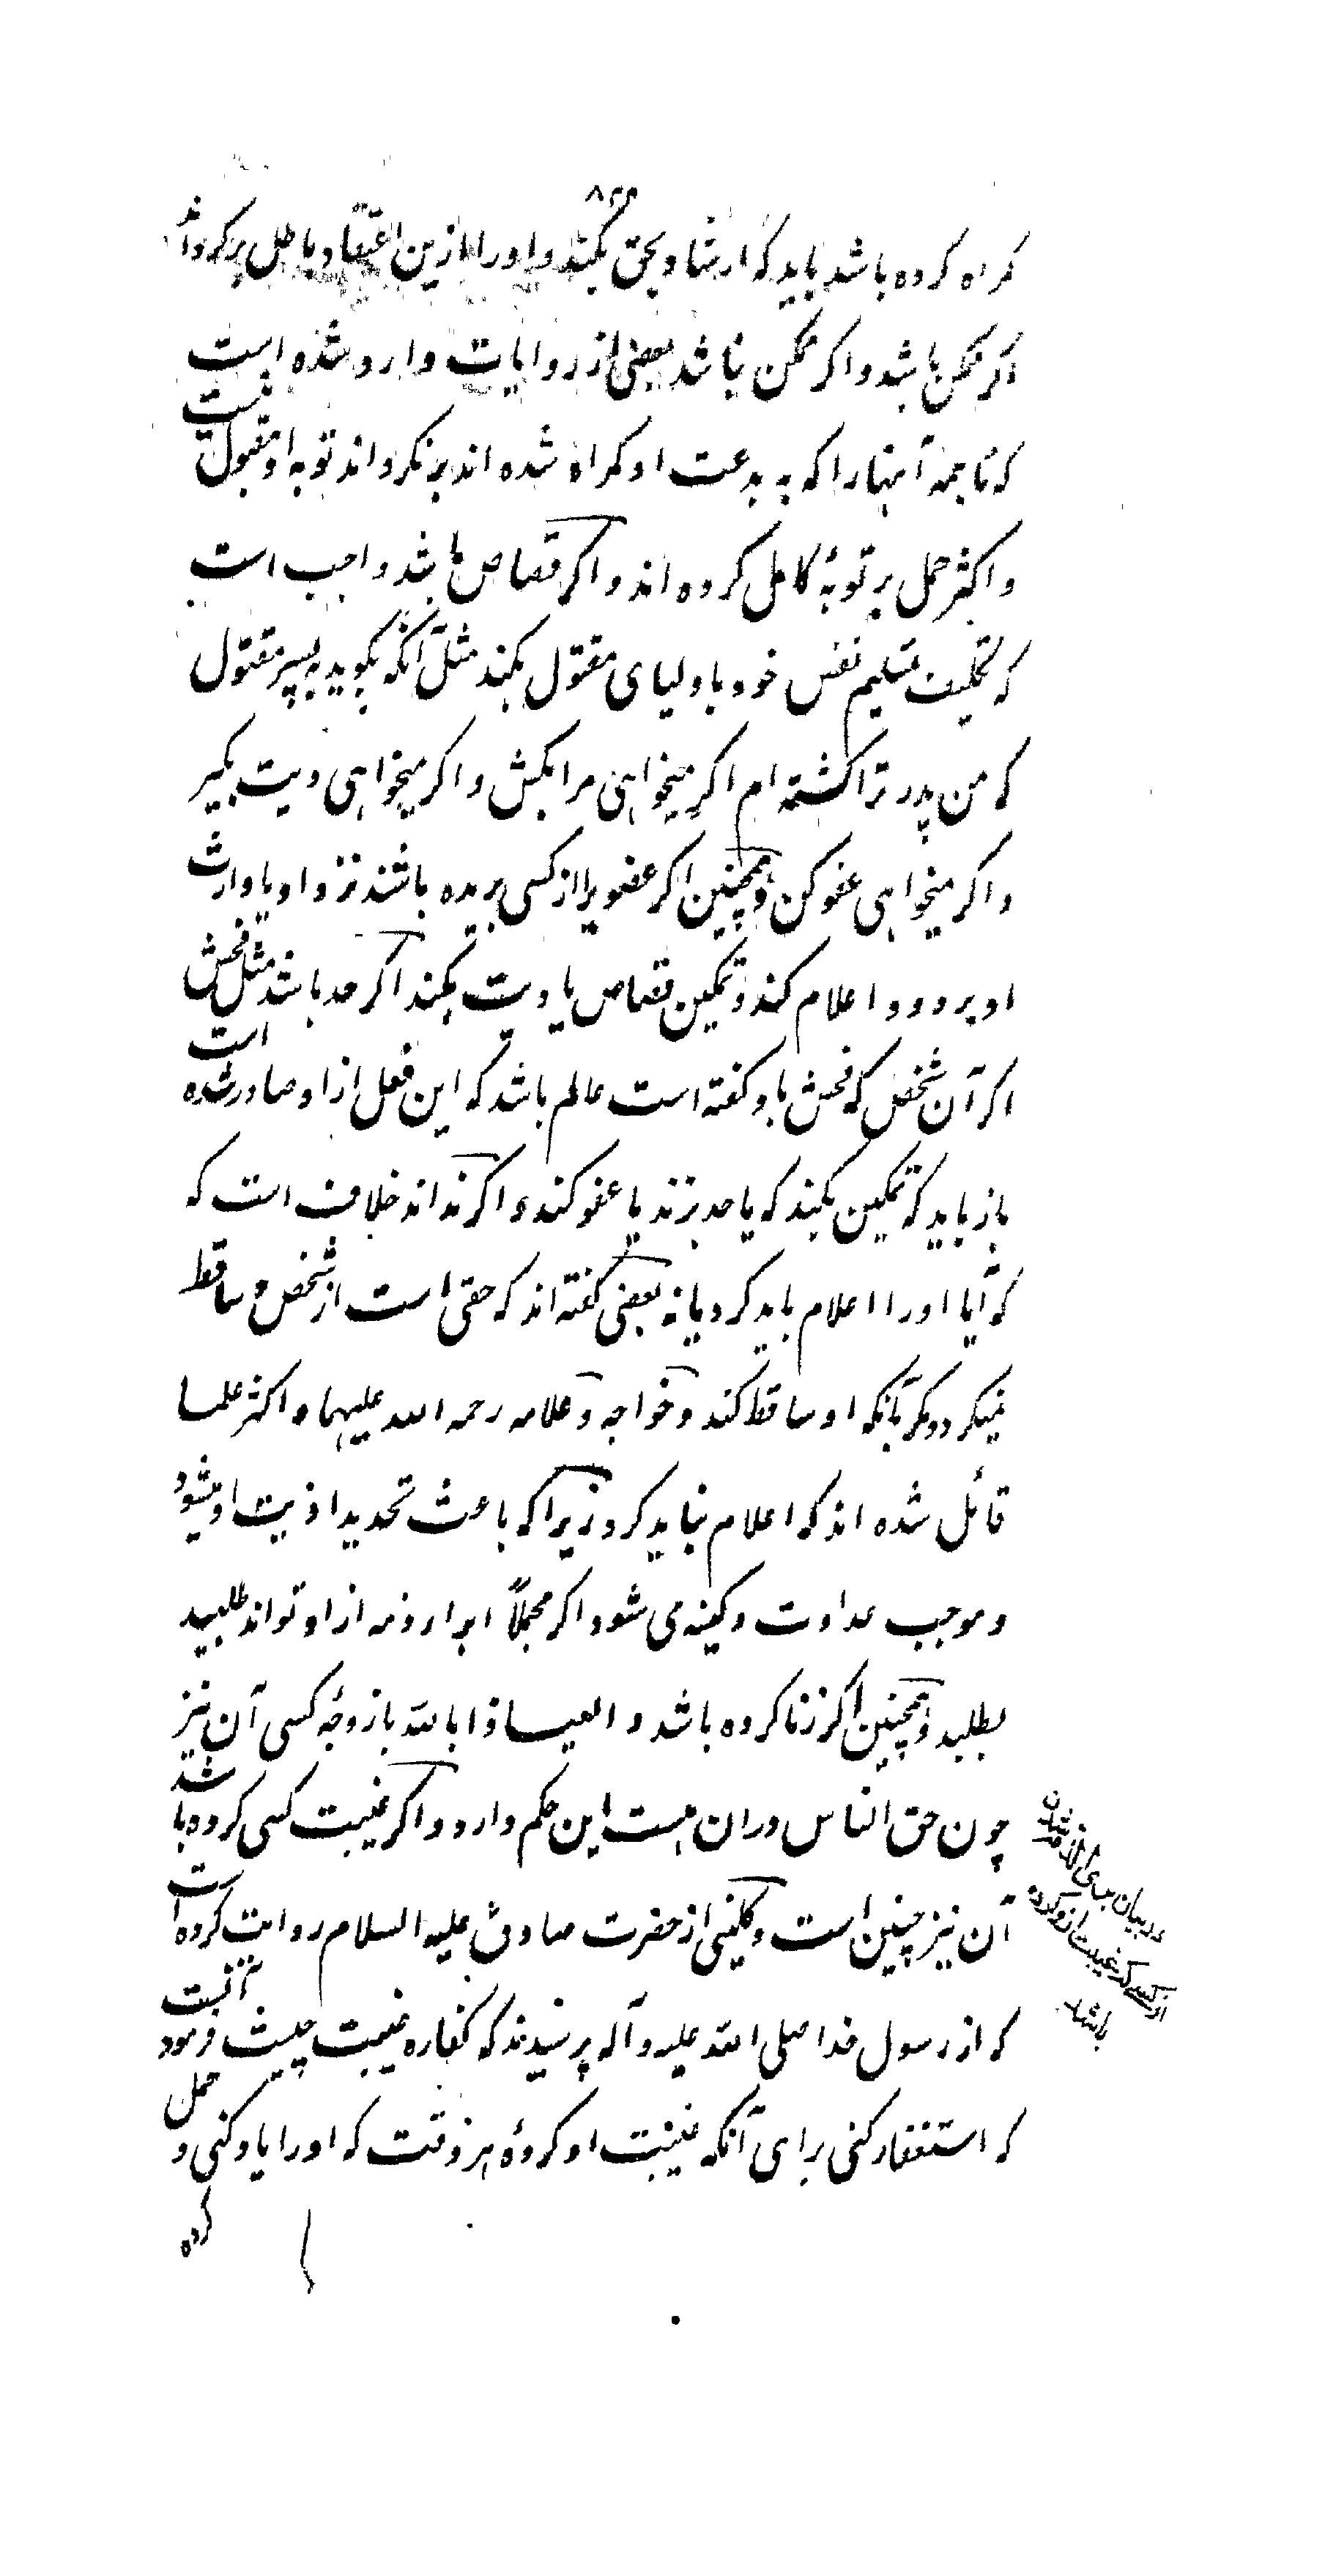 گمراه کرده باشد باید که ارشاد بحق بکند و او را ازین اعتقاد باطل برگرداند
اگر ممکن باشد و اگر ممکن نباشد بعضی از روایات وارد شده است
که تا همه آنها را که به بدعت او گمراه شده اند برنگرداند توبه او مقبول نیست
و اکثر حمل بر توبهٔ کامل کرده اند و اگر قصاص باشد واجب است
که تکلیف تسلیم نفس خود باولیای مقتول بکند مثل آنکه بگوید به پسر مقتول
که من پدر ترا کشته ام اگر میخواهی مرا بکش و اگر میخواهی دیت بگیر
و اگر میخواهی عفو کن و همچنین اگر عضویرا از کسی بریده باشد نزد او یا وارث
او برود و اعلام کند و تمکین قصاص یا دیت بکند اگر حد باشد مثل فحش
اگر آن شخص که فحش باو گفته است عالم باشد که این فعل از او صادر شده است
باز باید که تمکین بکند که یا حد بزند یا عفو کند و اگر نداند خلاف است که
که آیا او را اعلام باید کرد یا نه بعضی گفته اند که حقی است از شخص و ساقط
نمیگردد مگر بآنکه او ساقط کند و خواجه و علامه رحمه الله علیهما و اکثر علما
قائل شده اند که اعلام نباید کرد زیرا که باعث تحدید اذیت او میشود
و موجب عداوت و کینه می شود اگر مجملاً ابراء ذمه از او تواند طلبید
بطلبد و همچنین اگر زنا کرده باشد و العیاذا بالله با زوجهٔ کسی آن نیز
چون حق الناس دران هست این حکم دارد و اگر غیبت کسی کرده باشد
آن نیز چنین است و کلینی از حضرت صادق علیه السلام روایت کرده است
که از رسول خدا صلی الله علیه و آله پرسیدند که کفاره غیبت چیست فرمود آنست
که استغفار کنی برای آنکه غیبت او کردهٔ هر وقت که او را یاد کنی و حمل
کرده
در بیان برای الذمه شدن
از کسی که غیبت از او کرده
باشد